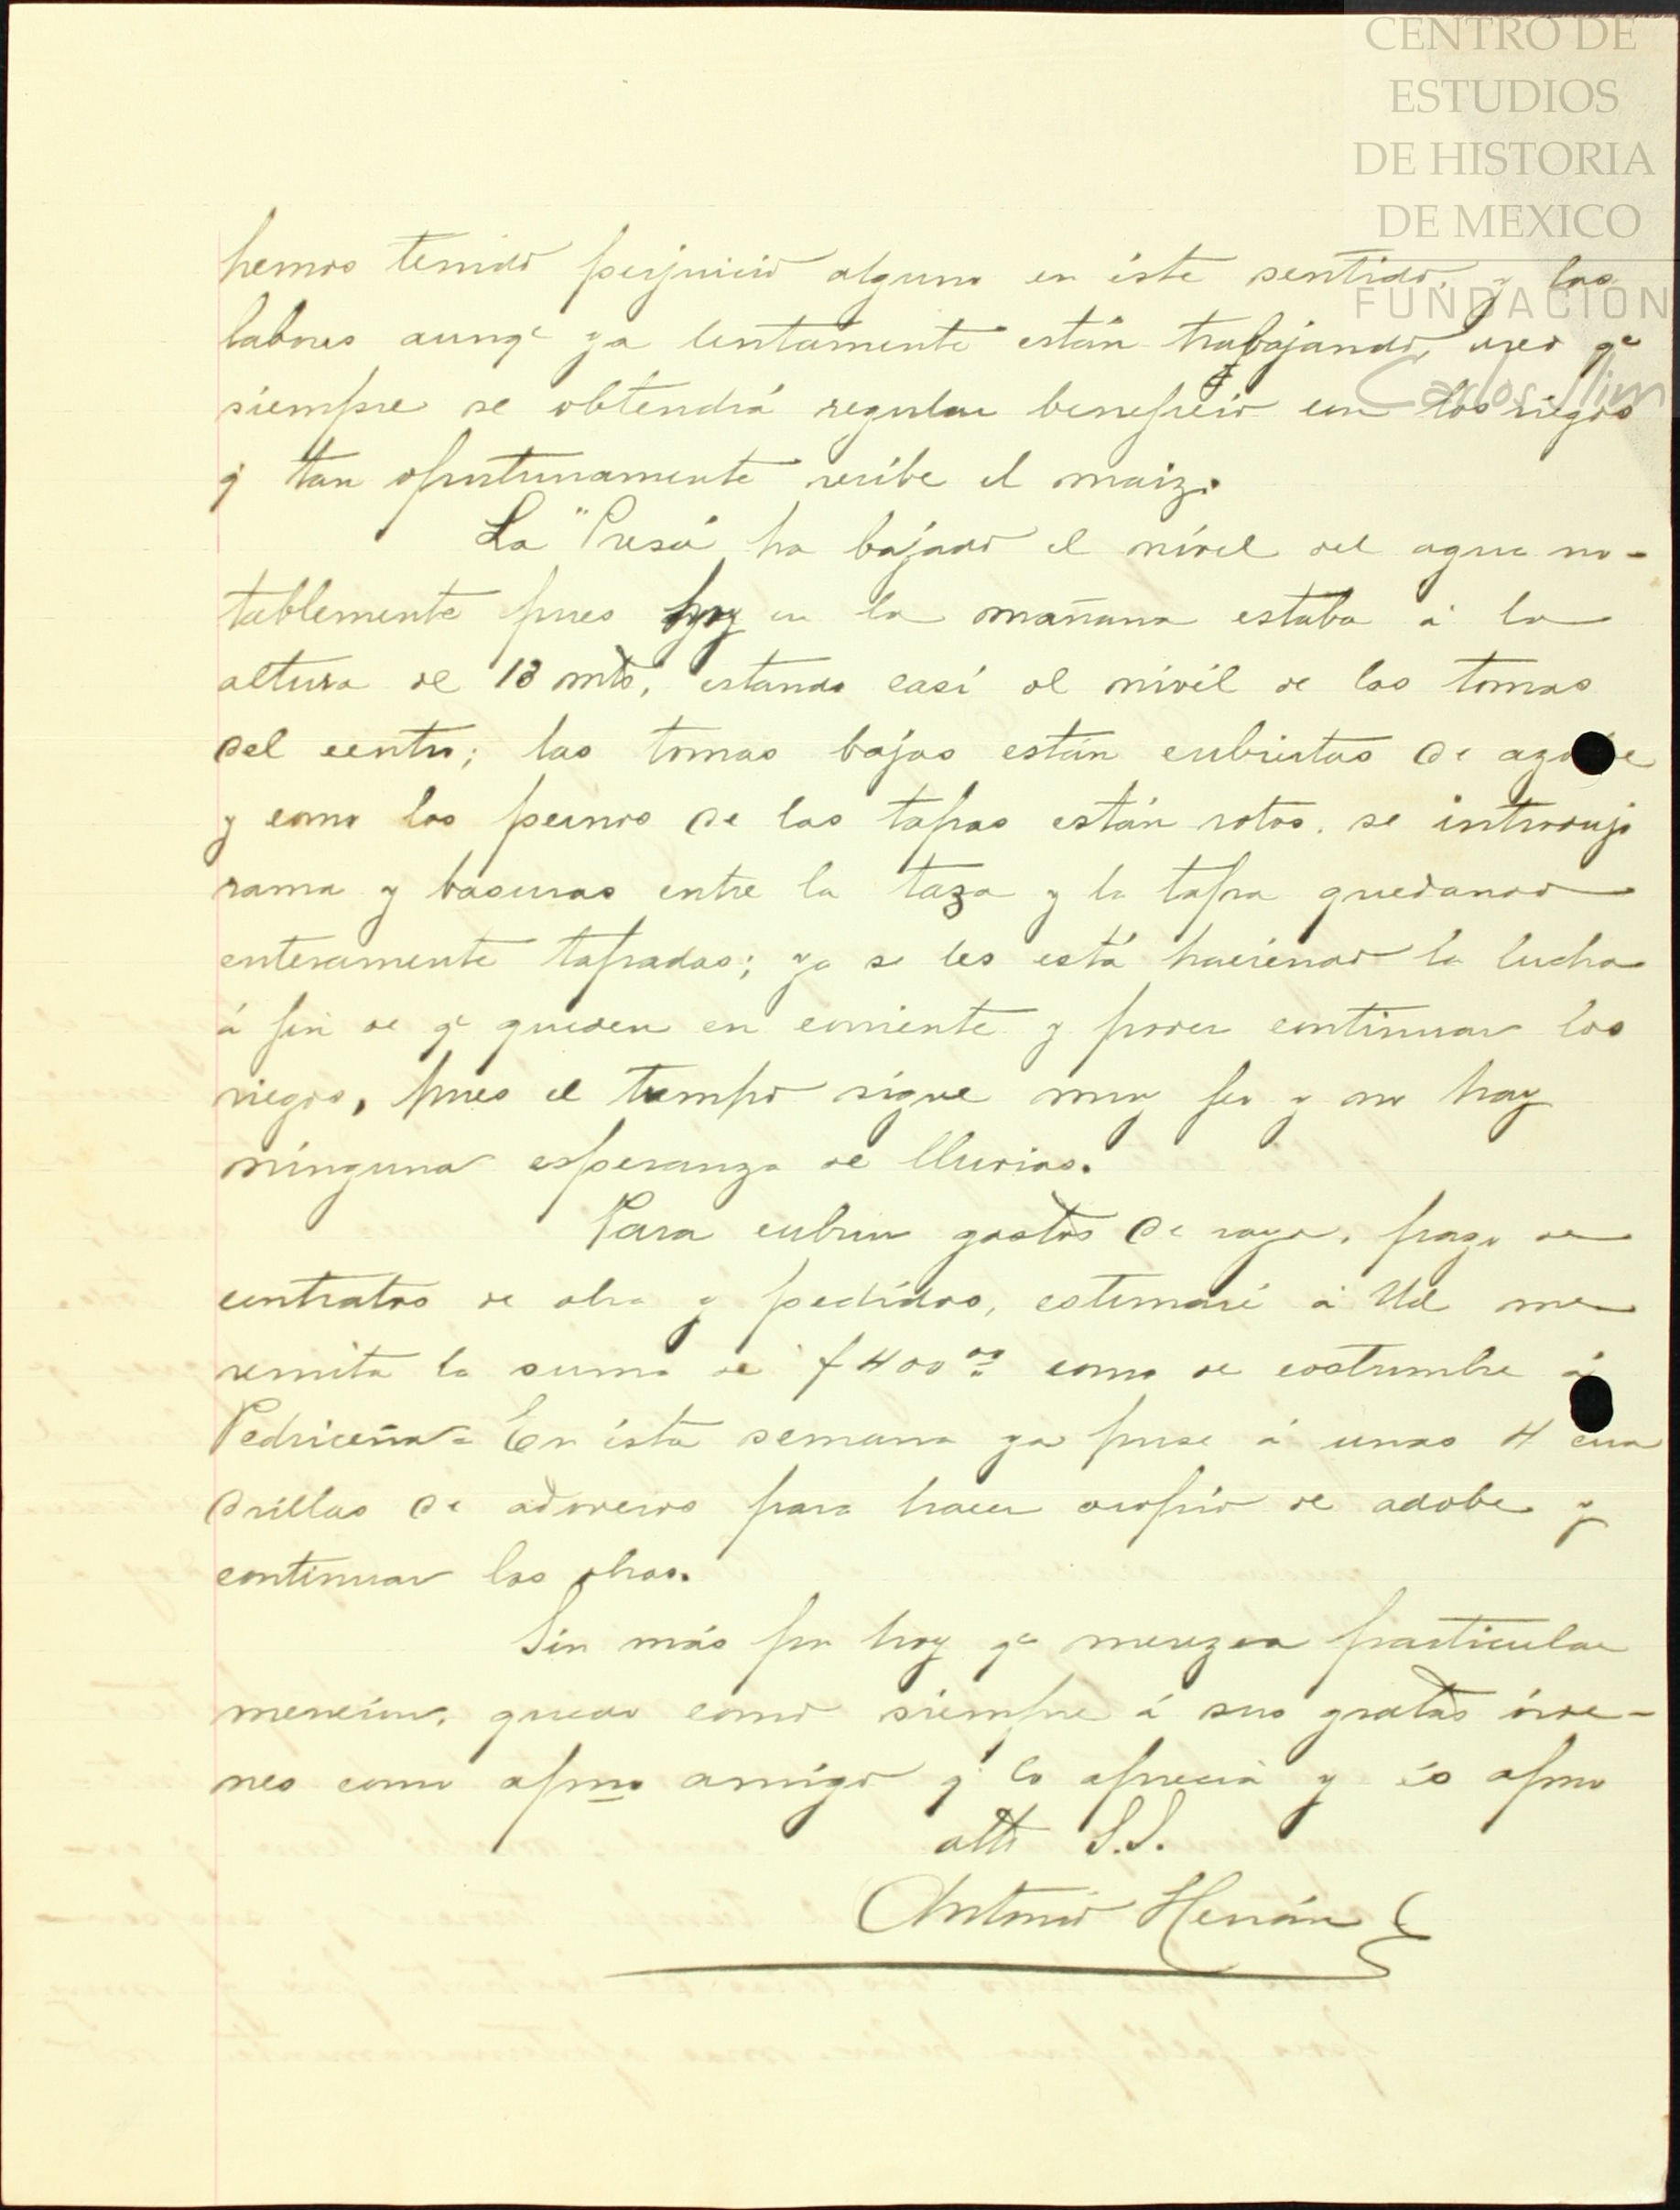 CENTRO DE
ESTUDIOS
DE HISTORIA
DE MEXICO
FUNDACIÓN
Carlos Slim
hemos tenido perjuicio alguno en éste sentido, y las
labores aunqe ya lentamente están trabajando, creo qe
siempre se obtendrá regular beneficio con los riegos
q tan oportunamente recibe el maiz.
La "Presa" ha bajado el nivel del agua no-
tablemente pues hoy en la mañana estaba á la
altura de 13 mts, estando casi al nivel de las tomas
del centro; las tomas bajas están cubiertas de azolve
y como los pernos de las tapas están rotos, se introdujo
rama y basuras entre la taza y la tapa quedando
enteramente tapadas; ya se les está haciendo la lucha
á fin de qe queden en corriente y poder continuar los
riegos, pues el tiempo sigue muy feo y no hay
ninguna esperanza de lluvias.
Para cubrir gastos de raya, pago de
contratos de obra y pedidos, estimaré á Ud me
remita la suma de $400.00 como de costumbre á
Pedriceña = En ésta semana ya puse á unas 4 cua
drillas de adoveros para hacer acopio de adobe y
continuar las obras.
Sin más por hoy qe merezca particular
mención, quedo como siempre á sus gratas órde-
nes como afmo amigo q lo aprecia y es afmo
atto S.S.
Antonio Hernán